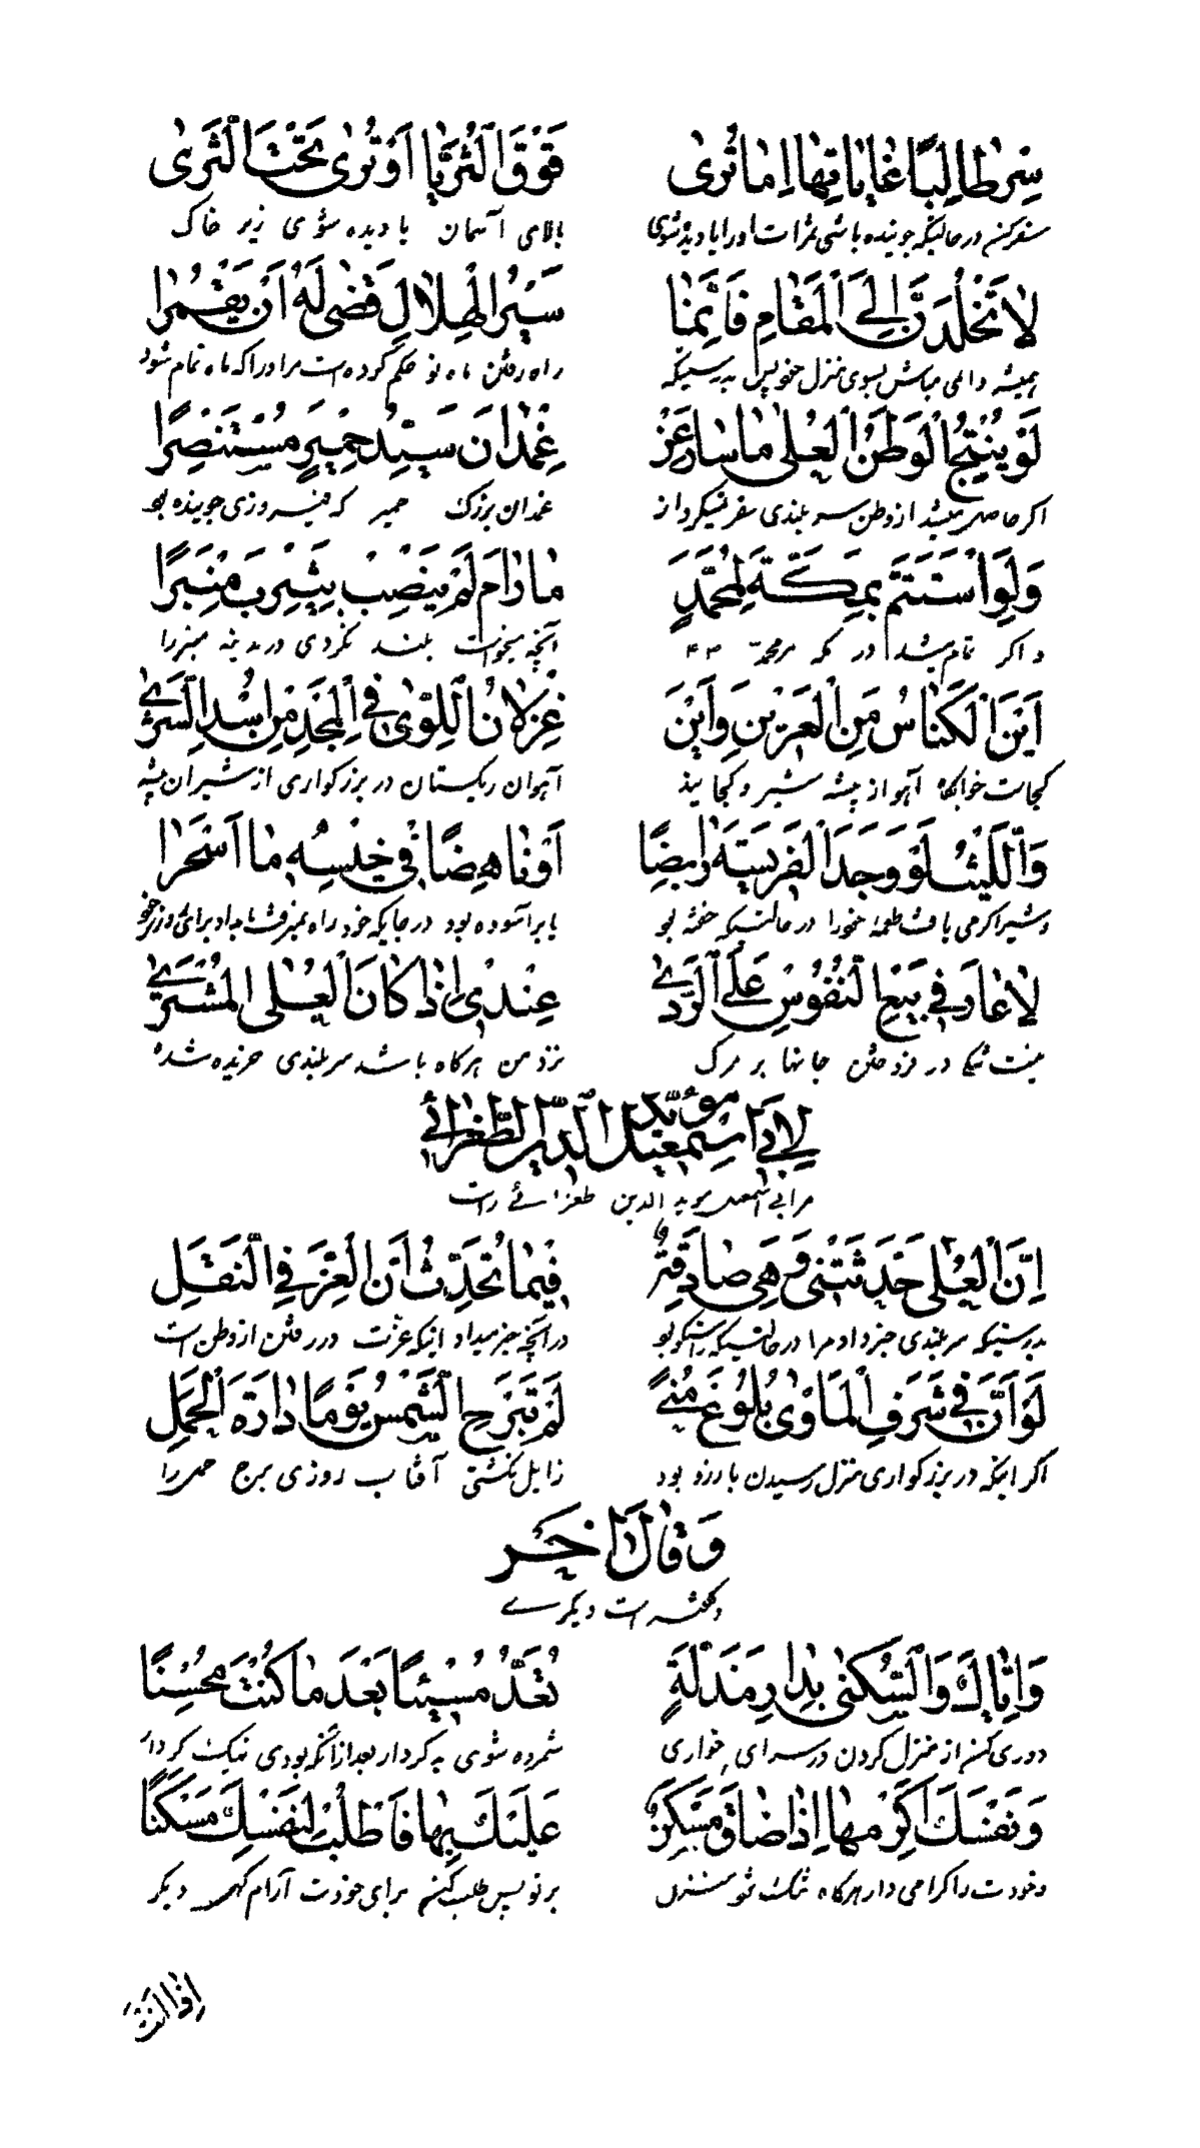 سِرْ طَالِبًا غَايَاتِهَا اِمَّا تُرٰى فَوْقَ الثُّرَيَّا اَوْ تُرٰى تَحْتَ الثَّرٰى
سفر کن در حالیکه جوینده باشی ثمرات اورا یا دیده شوی بالای آسمان یا دیده شوی زیر خاک
لَا تَخْلُدَنَّ اِلَى الْمَقَامِ فَاِنَّمَا سَيْرُ الْهِلَالِ قَضٰى لَهُ اَنْ يُقْمِرَا
همیشه دائمی مباش بسوی منزل خویش بدرستیکه راه رفتن ماه نو حکم کرده است مر اورا که ماه تمام شود
لَوْ يُنْتِجُ الْوَطَنُ الْعُلٰى مَا سَارَ عَنْ غِمْدَانَ سَيِّدُ حِمْيَرٍ مُسْتَنْصِرًا
اگر حاصل میشد از وطن سربلندی سفر نمیکرد از غمدان بزرگ حمیر که فیروزی جوینده بود
وَلَوِ اسْتَتَمَّ بِمَكَّةَ لِمُحَمَّدٍ مَا رَامَ لَمْ يَنْصِبْ بِيَثْرِبَ مِنْبَرًا
و اگر تمام میشد در مکه مر محمد آنچه میخواست بلند نکردی در مدینه منبر را
اَيْنَ الْكِنَاسُ مِنَ الْعَرِيْنِ وَاَيْنَ غِزْلَانُ اللِّوٰى فِي الْمَجْدِ مِنْ اُسْدِ الشَّرٰى
کجاست خوابگاه آهو از بیشه شیر و کجایند آهوان ریگستان در بزرگواری از شیران بیشه
وَاللَّيْثُ لَوْ وَجَدَ الْفَرِيْسَةَ رَابِضًا اَوْ نَاهِضًا فِي خِيْسِهِ مَا اَصْحَرَا
و شیر اگر می یافت طعمه خود را در حالتیکه خفته بود یا برآسوده بود در جایگه خود راه نمیرفت
لَا عَارَ فِي بَيْعِ النُّفُوْسِ عَلَى الرَّدٰى عِنْدِيْ اِذَا كَانَ الْعُلٰى الْمُشْتَرٰى
نیست ننگی در فروختن جانها بر مرگ نزد من هرگاه باشد سربلندی خریده شده
لِاَبِي اِسْمٰعِيْلَ مُؤَيَّدِ الدِّيْنِ الطُّغْرَائِيْ
مر ابی اسمعیل موید الدین طغرائی راست
اِنَّ الْعُلٰى حَدَّثَتْنِيْ وَهِيَ صَادِقَةٌ فِيْمَا تُحَدِّثُ اَنَّ الْعِزَّ فِي النُّقَلِ
بدرستیکه سربلندی خبر داد مرا در حالتیکه راستگو بود در آنچه خبر میداد اینکه عزت در رفتن از وطن است
لَوْ اَنَّ فِي شَرَفِ الْمَأْوٰى بُلُوْغَ مُنًى لَمْ تَبْرَحِ الشَّمْسُ يَوْمًا دَارَةَ الْحَمَلِ
اگر اینکه در بزرگواری منزل رسیدن بارزو بود زایل نگشتی آفتاب روزی برج حمل را
وَقَالَ اٰخَرُ
و گفته است دیگرے
وَاِيَّاكَ وَالسُّكْنٰى بِدَارِ مَذَلَّةٍ تُعَدُّ مُسِيْئًا بَعْدَ مَا كُنْتَ مُحْسِنًا
دوری کن از منزل کردن در سرای خواری شمرده شوی بد کردار بعد از آنکه بودی نیک کردار
وَنَفْسَكَ اَكْرِمْهَا اِذَا ضَاقَ مَسْكَنٌ عَلَيْكَ بِهَا فَاطْلُبْ لِنَفْسِكَ مَسْكَنًا
و خودت را گرامی دار هرگاه تنگ شود منزل بر تو پس طلب کن برای خودت آرامگهی دیگر
اِذَا اَنْتَ